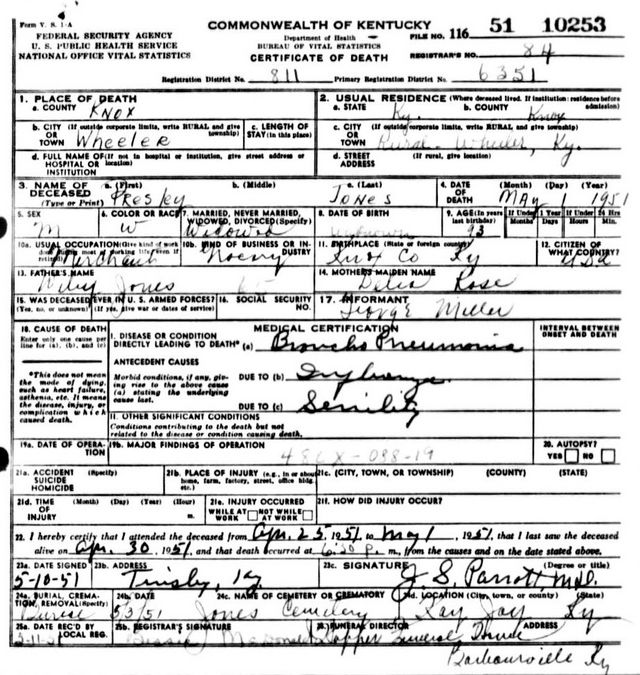 Form V. S. 1-A
FEDERAL SECURITY AGENCY
U. S. PUBLIC HEALTH SERVICE
NATIONAL OFFICE VITAL STATISTICS
COMMONWEALTH OF KENTUCKY
Department of Health
BUREAU OF VITAL STATISTICS
CERTIFICATE OF DEATH
FILE NO. 116 51 10253
REGISTRAR'S NO. 84
Registration District No. 811 Primary Registration District No. 6351
1. PLACE OF DEATH
a. COUNTY Knox
b. CITY (If outside corporate limits, write RURAL and give township) OR TOWN Wheeler
c. LENGTH OF STAY (in this place)
d. FULL NAME OF (If not in hospital or institution, give street address or location) HOSPITAL OR INSTITUTION
2. USUAL RESIDENCE (Where deceased lived. If institution: residence before admission)
a. STATE Ky. b. COUNTY Knox
c. CITY (If outside corporate limits, write RURAL and give township) OR TOWN Rural Wheeler, Ky.
d. STREET ADDRESS (If rural, give location)
3. NAME OF DECEASED (Type or Print) a. (First) Presley b. (Middle) c. (Last) Jones
4. DATE OF DEATH (Month) (Day) (Year) May 1 1951
5. SEX M
6. COLOR OR RACE W
7. MARRIED, NEVER MARRIED, WIDOWED, DIVORCED (Specify) Widowed
8. DATE OF BIRTH unknown
9. AGE (In years last birthday) 93 If Under 1 Year Months Days If Under 24 Hrs Hours Min.
10a. USUAL OCCUPATION (Give kind of work done during most of working life, even if retired) Merchant
10b. KIND OF BUSINESS OR INDUSTRY
11. BIRTHPLACE (State or foreign country) Knox Co Ky
12. CITIZEN OF WHAT COUNTRY? USA
13. FATHER'S NAME Wiley Jones
14. MOTHERS MAIDEN NAME Delia Rose
15. WAS DECEASED EVER IN U. S. ARMED FORCES? (Yes, no, or unknown) (If yes, give war or dates of service)
16. SOCIAL SECURITY NO.
17. INFORMANT George Miller
18. CAUSE OF DEATH
Enter only one cause per line for (a), (b), and (c)
*This does not mean the mode of dying, such as heart failure, asthenia, etc. It means the disease, injury, or complication which caused death.
MEDICAL CERTIFICATION
INTERVAL BETWEEN ONSET AND DEATH
I. DISEASE OR CONDITION DIRECTLY LEADING TO DEATH* (a) Broncho Pneumonia
ANTECEDENT CAUSES
Morbid conditions, if any, giving rise to the above cause (a) stating the underlying cause last.
DUE TO (b) Influenza
DUE TO (c) Senility
II. OTHER SIGNIFICANT CONDITIONS
Conditions contributing to the death but not related to the disease or condition causing death.
19a. DATE OF OPERATION
19b. MAJOR FINDINGS OF OPERATION
480X-098-19
20. AUTOPSY? YES NO
21a. ACCIDENT SUICIDE HOMICIDE (Specify)
21b. PLACE OF INJURY (e.g., in or about home, farm, factory, street, office bldg., etc.)
21c. (CITY, TOWN, OR TOWNSHIP) (COUNTY) (STATE)
21d. TIME OF INJURY (Month) (Day) (Year) (Hour) m.
21e. INJURY OCCURRED WHILE AT WORK NOT WHILE AT WORK
21f. HOW DID INJURY OCCUR?
22. I hereby certify that I attended the deceased from Apr. 25, 1951, to May 1, 1951, that I last saw the deceased
alive on Apr. 30, 1951, and that death occurred at 6:30 P. m., from the causes and on the date stated above.
23a. DATE SIGNED 5-10-51
23b. ADDRESS Tinsley, Ky
23c. SIGNATURE (Degree or title) J. S. Parrott M.D.
24a. BURIAL, CREMATION, REMOVAL (Specify) Burial
24b. DATE 5/3/51
24c. NAME OF CEMETERY OR CREMATORY Jones Cemetery
24d. LOCATION (City, town, or county) (State) Kay Jay Ky
25a. DATE REC'D BY LOCAL REG.
25b. REGISTRAR'S SIGNATURE Bessie McDonald
26. FUNERAL DIRECTOR Hopper Funeral Home
Barbourville Ky